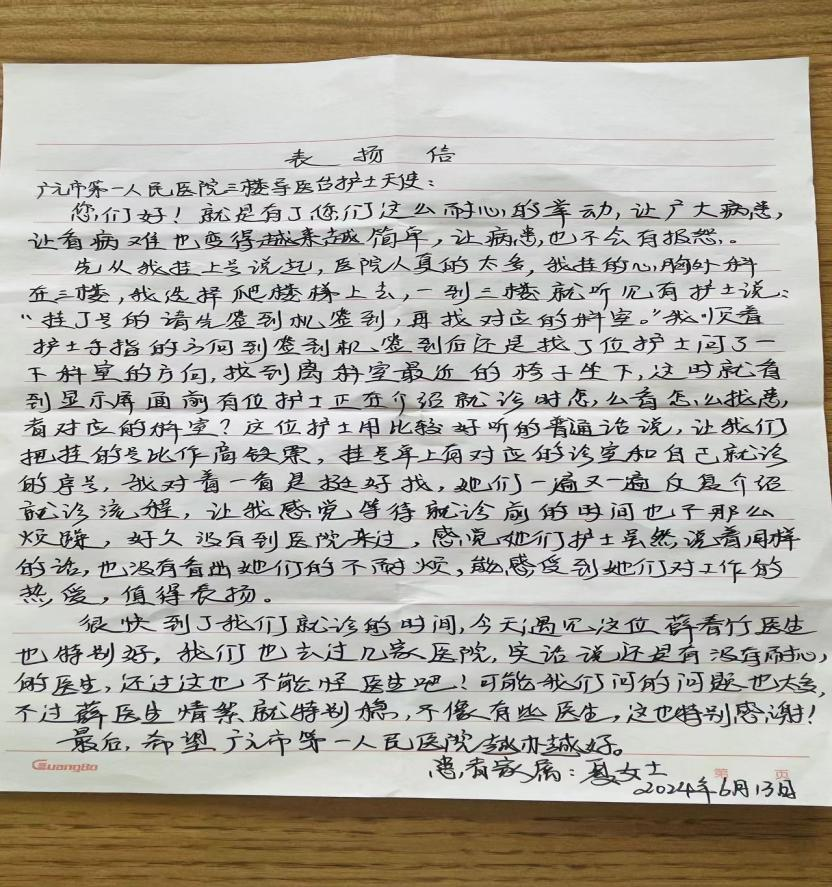 表扬信
广元市第一人民医院三楼导医台护士天使：
您们好！就是有了您们这么耐心的举动，让广大病患，
让看病难也变得越来越简单，让病患也不会有报怨。
先从我挂上号说起，医院人真的太多，我挂的心胸外科
在三楼，我选择爬楼梯上去，一到三楼就听见有护士说：
“挂了号的请先签到机签到，再找对应的科室。”我顺着
护士手指的方向到签到机签到后还是找了位护士问了一
下科室的方向，找到离科室最近的椅子坐下，这时就看
到显示屏面前有位护士正在介绍就诊时怎么看怎么找患，
者对应的科室？这位护士用比较好听的普通话说，让我们
把挂的号比作高铁票，挂号单上有对应的诊室和自己就诊
的序号，我对着一看是挺好找，她们一遍又一遍反复介绍
就诊流程，让我感觉等待就诊前的时间也不那么
烦躁，好久没有到医院来过，感觉她们护士虽然说着同样
的话，也没有看出她们的不耐烦，能感受到她们对工作的
热爱，值得表扬。
很快到了我们就诊的时间，今天遇见这位薛看竹医生
也特别好，我们也去过几家医院，实话说还是有没有耐心
的医生，还过这也不能怪医生吧！可能我们问的问题也太多，
不过薛医生情绪就特别稳，不像有些医生，这也特别感谢！
最后，希望广元市第一人民医院越办越好。
患者家属：夏女士
2024年6月13日
GuangBo
第 页